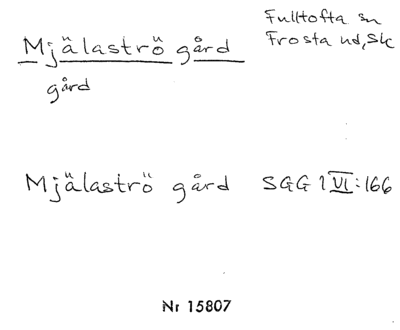 Mjälaströ gård
Fulltofta sn
Frosta hd, Sk
gård
Mjälaströ gård SGG 1 VI:166
Nr 15807